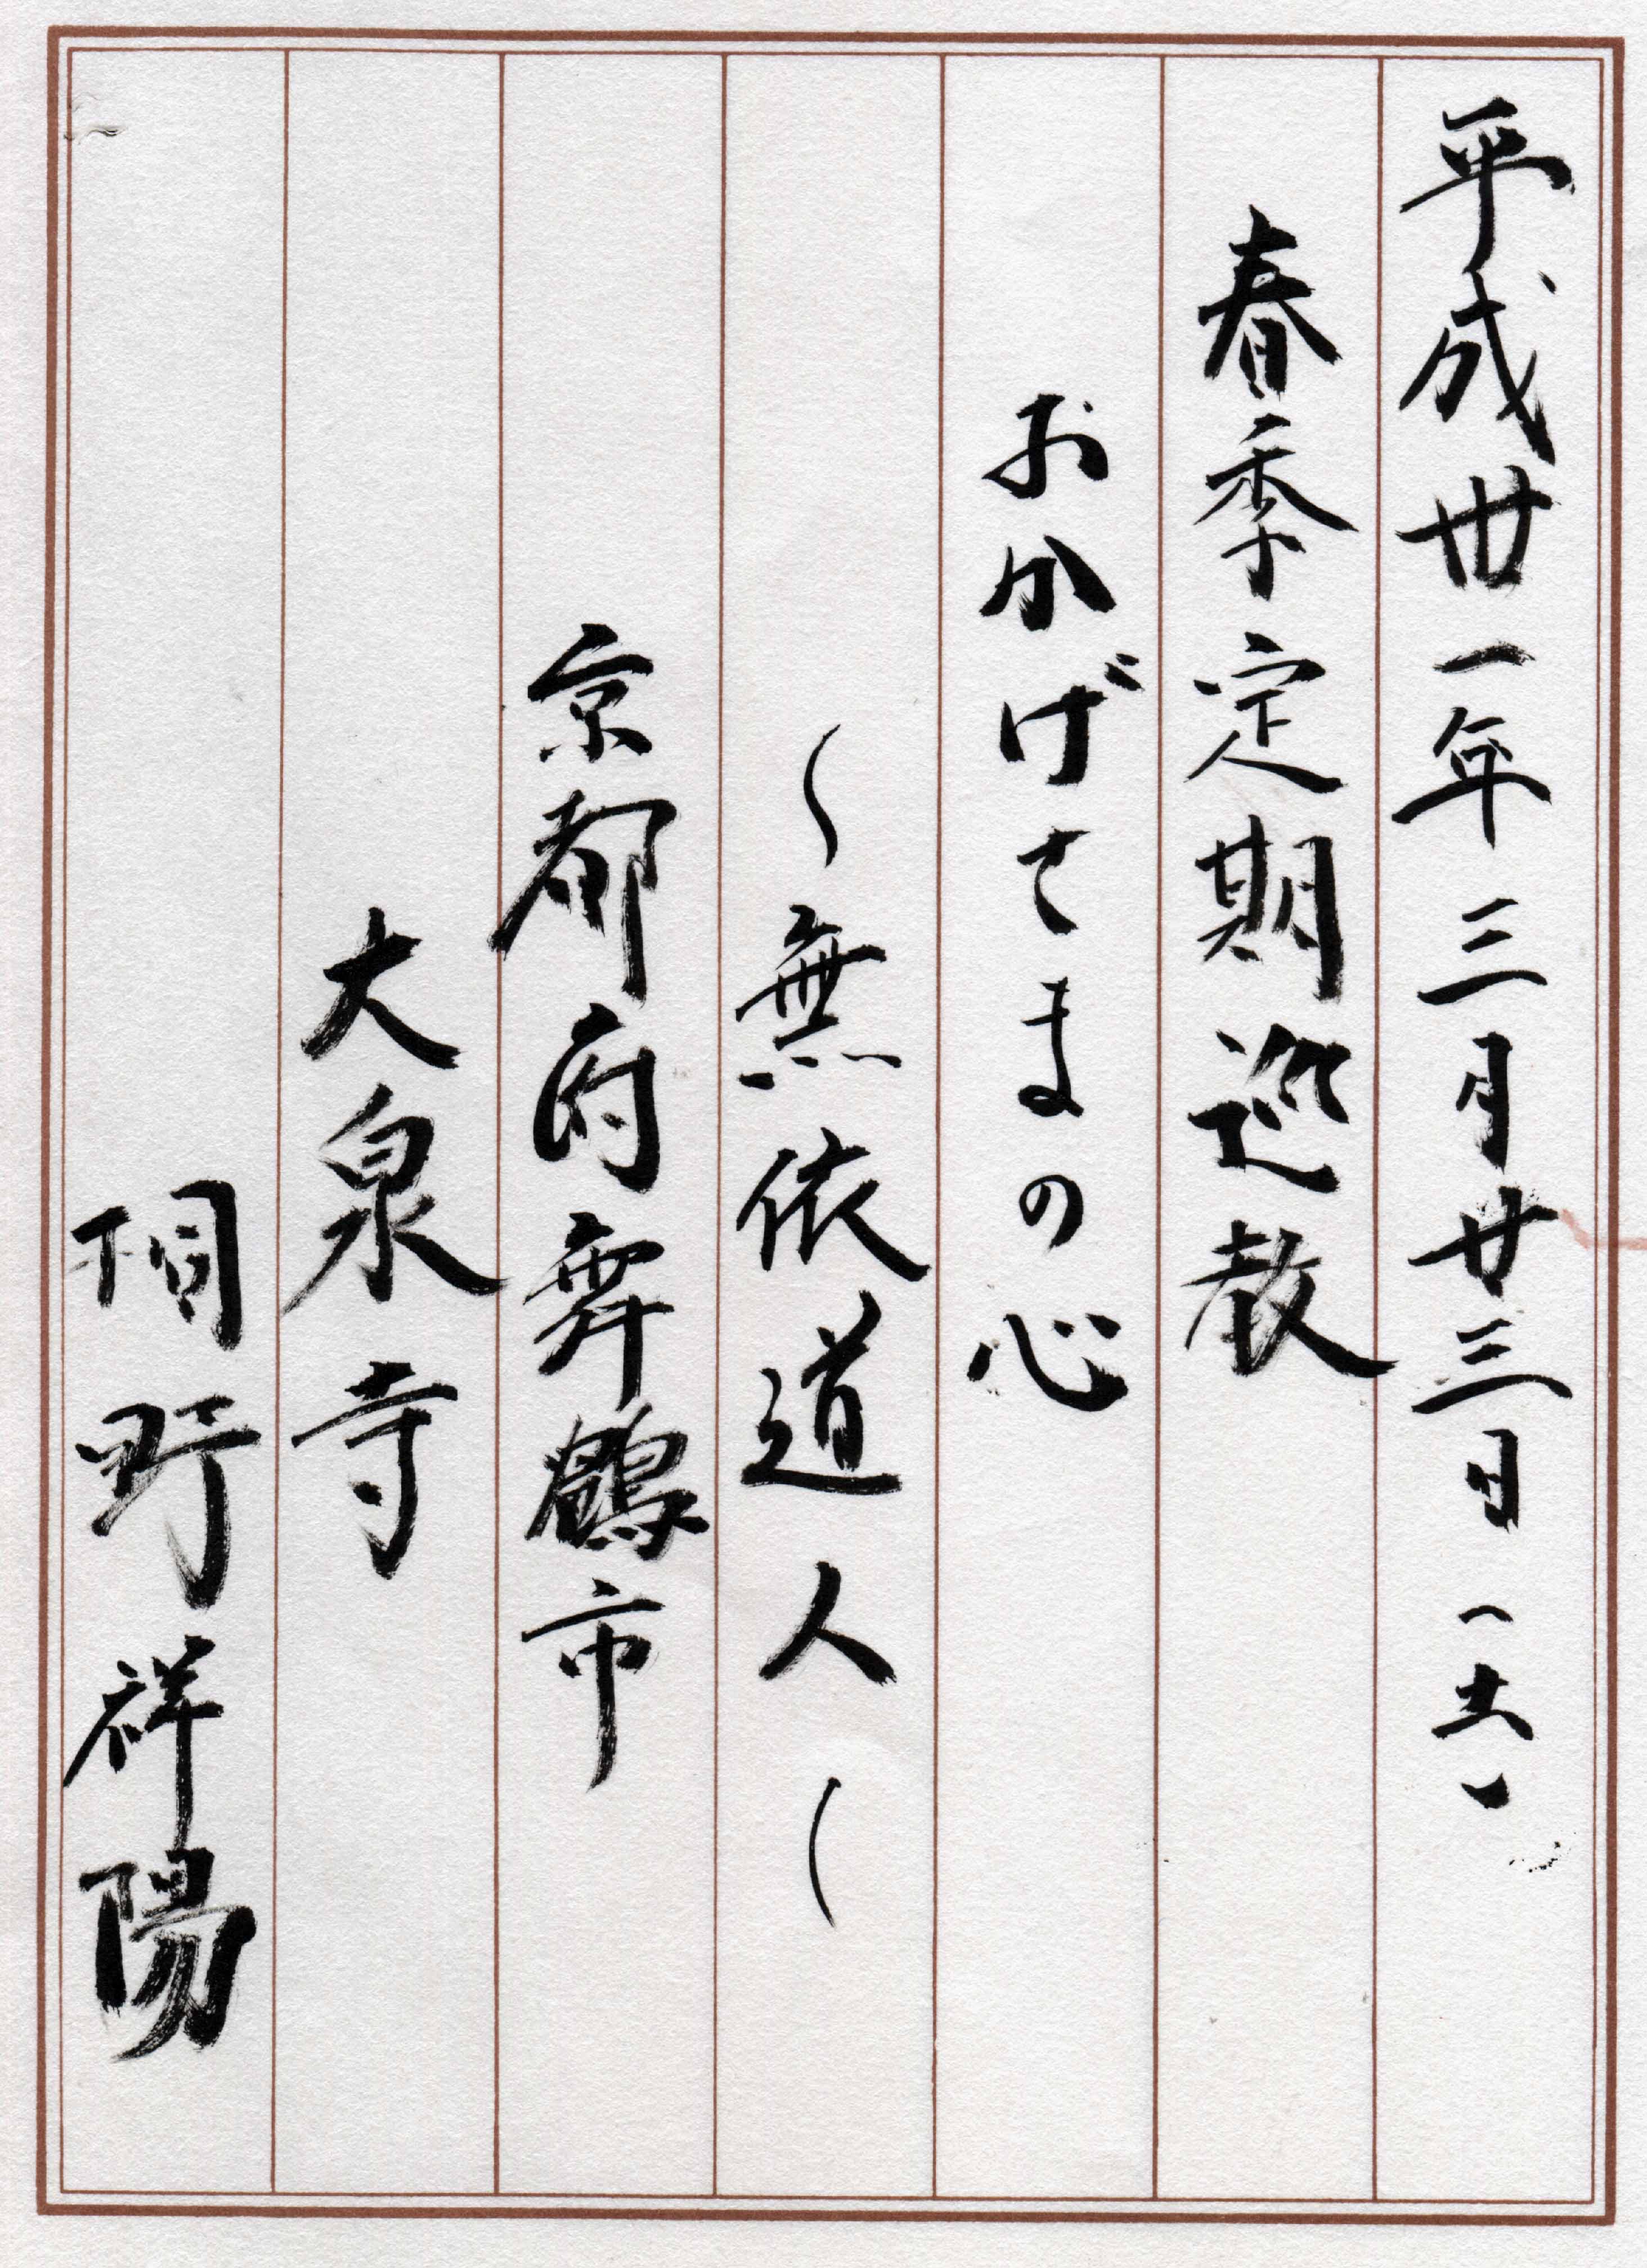 平成丗一年三月廿三日（土）
春季定期巡教
おかげさまの心
〜無依道人〜
京都府舞鶴市
大泉寺
桐野祥陽